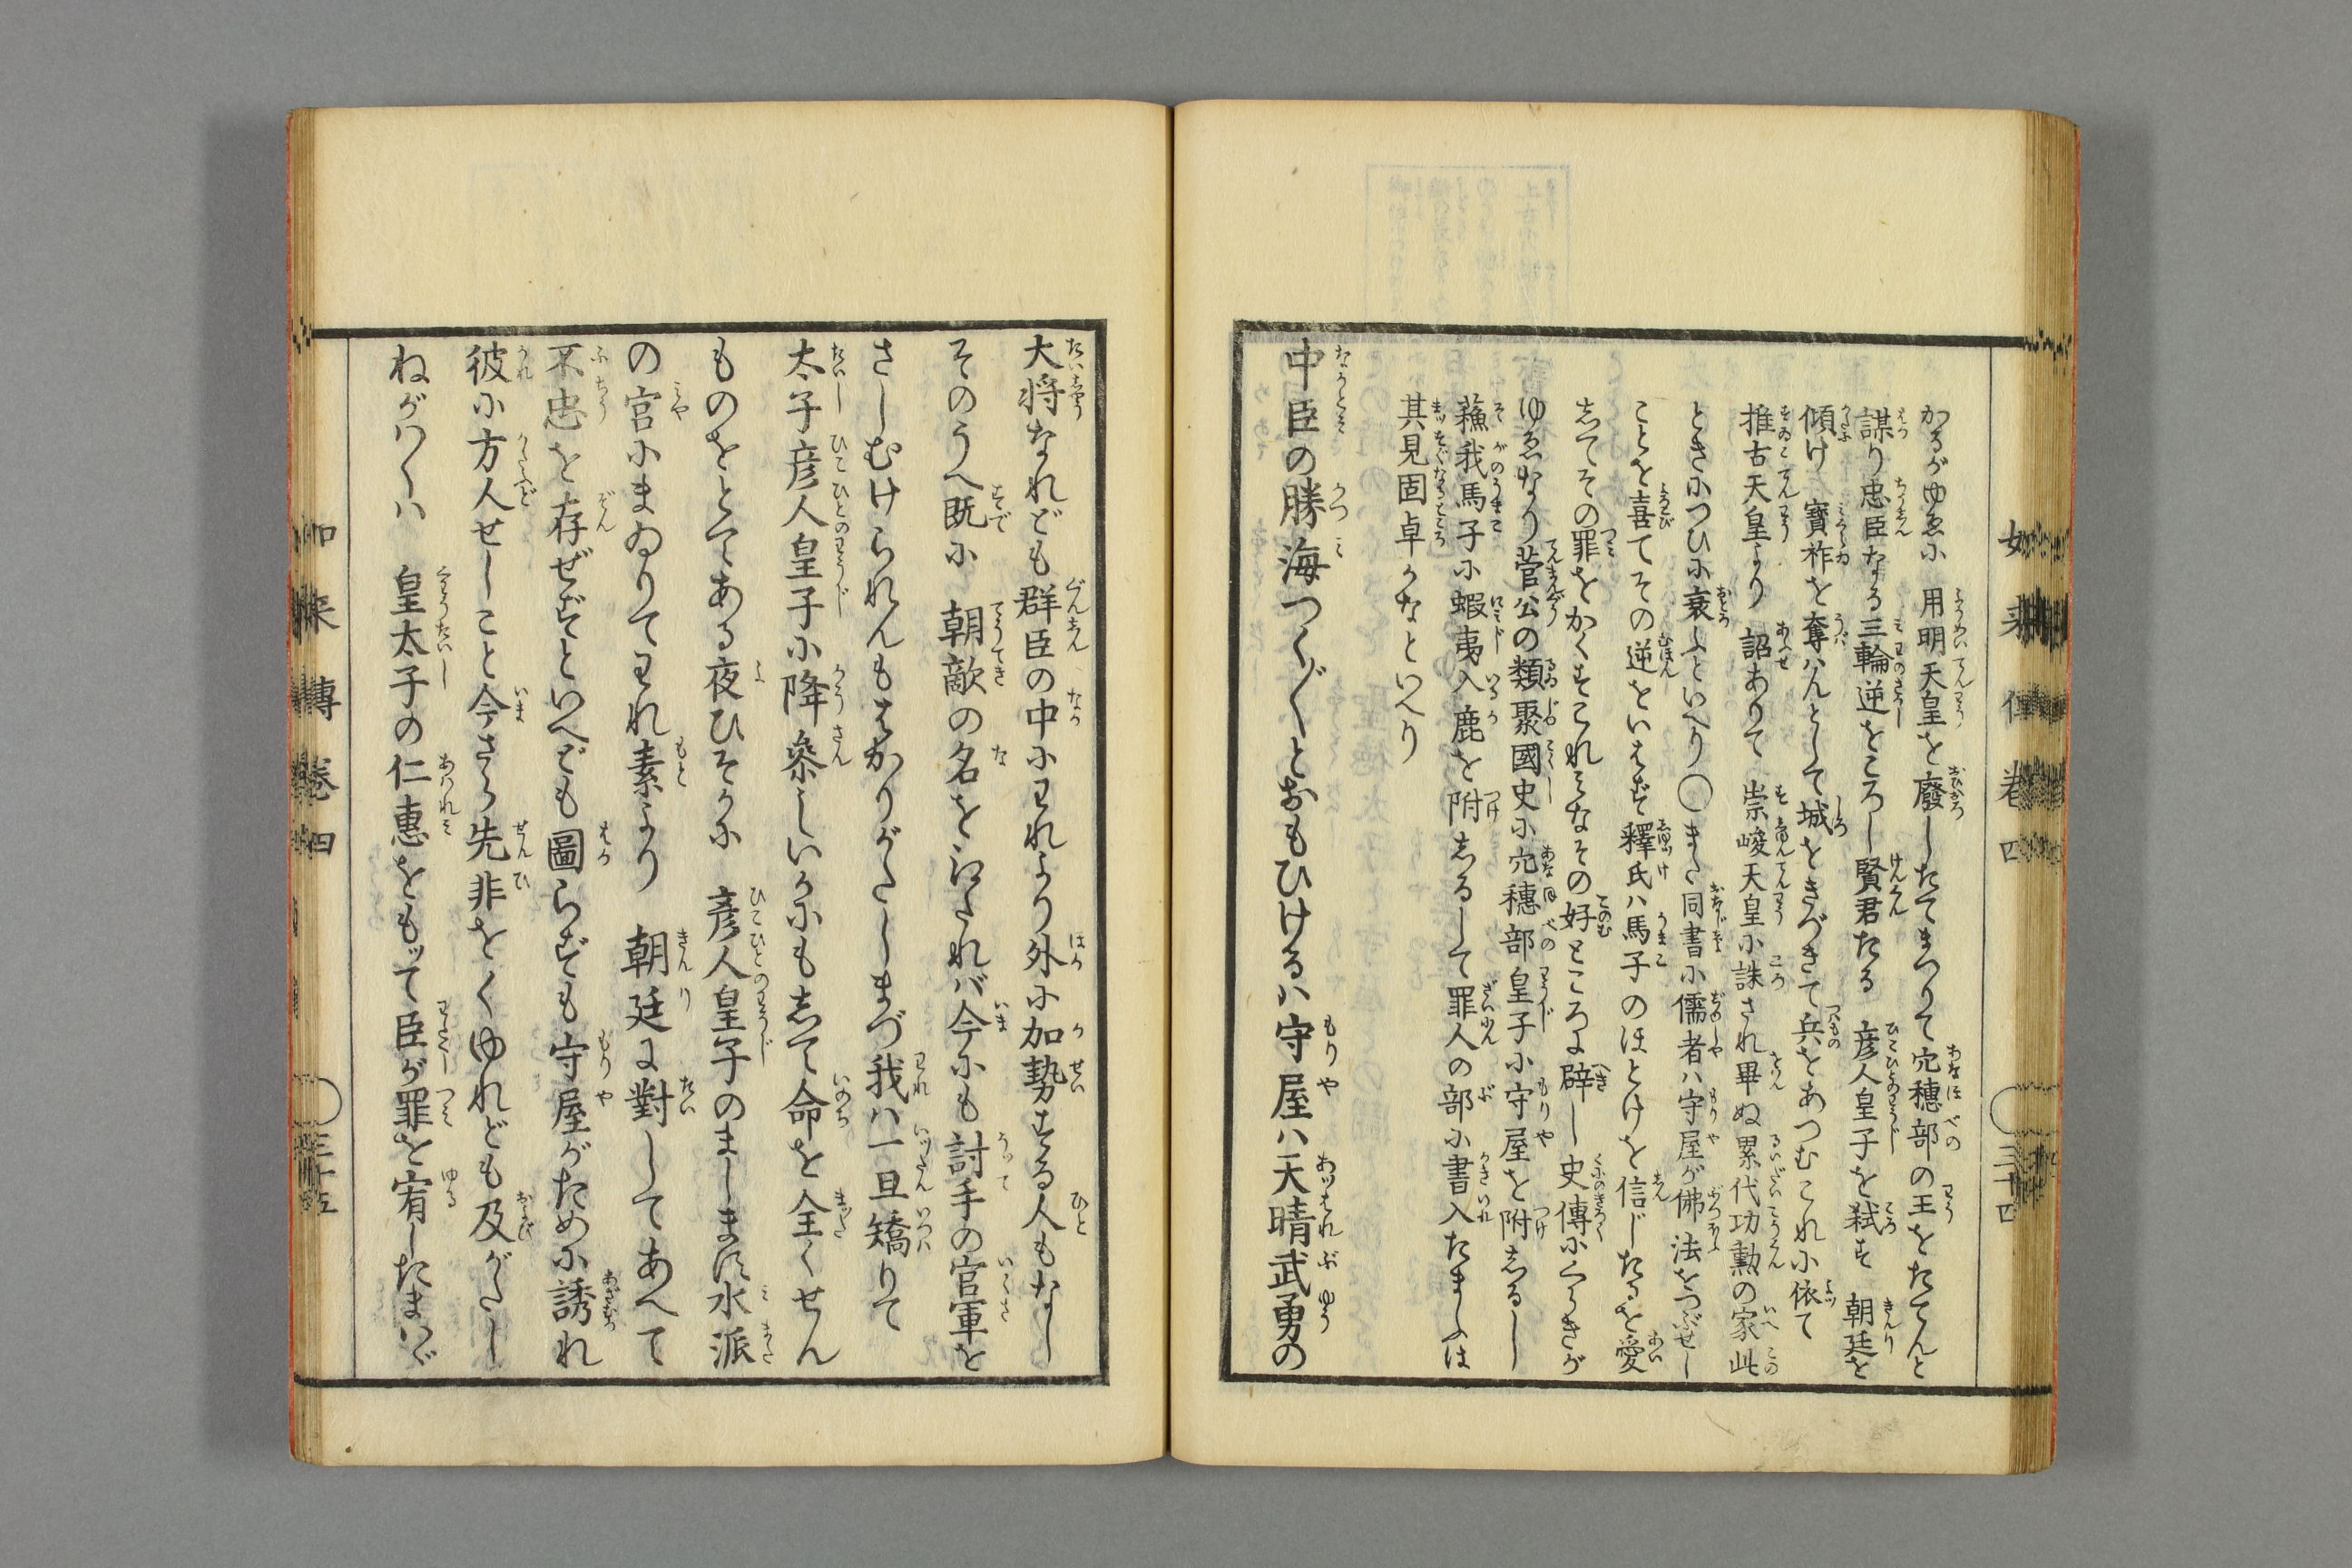 かるがゆゑに　用明天皇を廢したてまつりて穴穗部の王をたてんと
謀り忠臣なる三輪逆をころし賢君たる　彦人皇子を弑す　朝廷を
傾け　寳祚を奪はんとして城をきづきて兵をあつむこれに依て
推古天皇より　詔ありて　崇峻天皇に誅され畢ぬ累代功勲の家此
ときにつひに衰ふといへり〇また同書に儒者ハ守屋が佛法をつぶせし
ことを喜てその逆をいはず釋氏ハ馬子のほとけを信じたるを愛
してその罪をかくすこれみなその好ところに辟し史傳にくらきが
ゆゑなり菅公の類聚國史に穴穗部皇子に守屋を附しるし
蘓我馬子に蝦夷入鹿を附しるして罪人の部に書入たまふは
其見固卓かなといへり
中臣の勝海つく〴〵とおもひけるハ守屋ハ天晴武勇の
如来傳卷四
三十四
大将なれども群臣の中にわれより外に加勢する人もなし
そのうへ既に　朝敵の名を得たれバ今にも討手の官軍を
さしむけられんもはかりがたしまづ我ハ一旦矯りて
太子彦人皇子に降參しいかにも志て命を全くせん
ものをとてある夜ひそかに　彦人皇子のまします水派
の宮にまゐりてわれ素より　朝廷に對してあへて
不忠を存ぜずといへども圖らずも守屋がために誘れ
彼に方人せしこと今さら先非をくゆれども及がたし
ねがハくハ　皇太子の仁惠をもッて臣が罪を宥したまハヾ
如来傳卷四
三十五